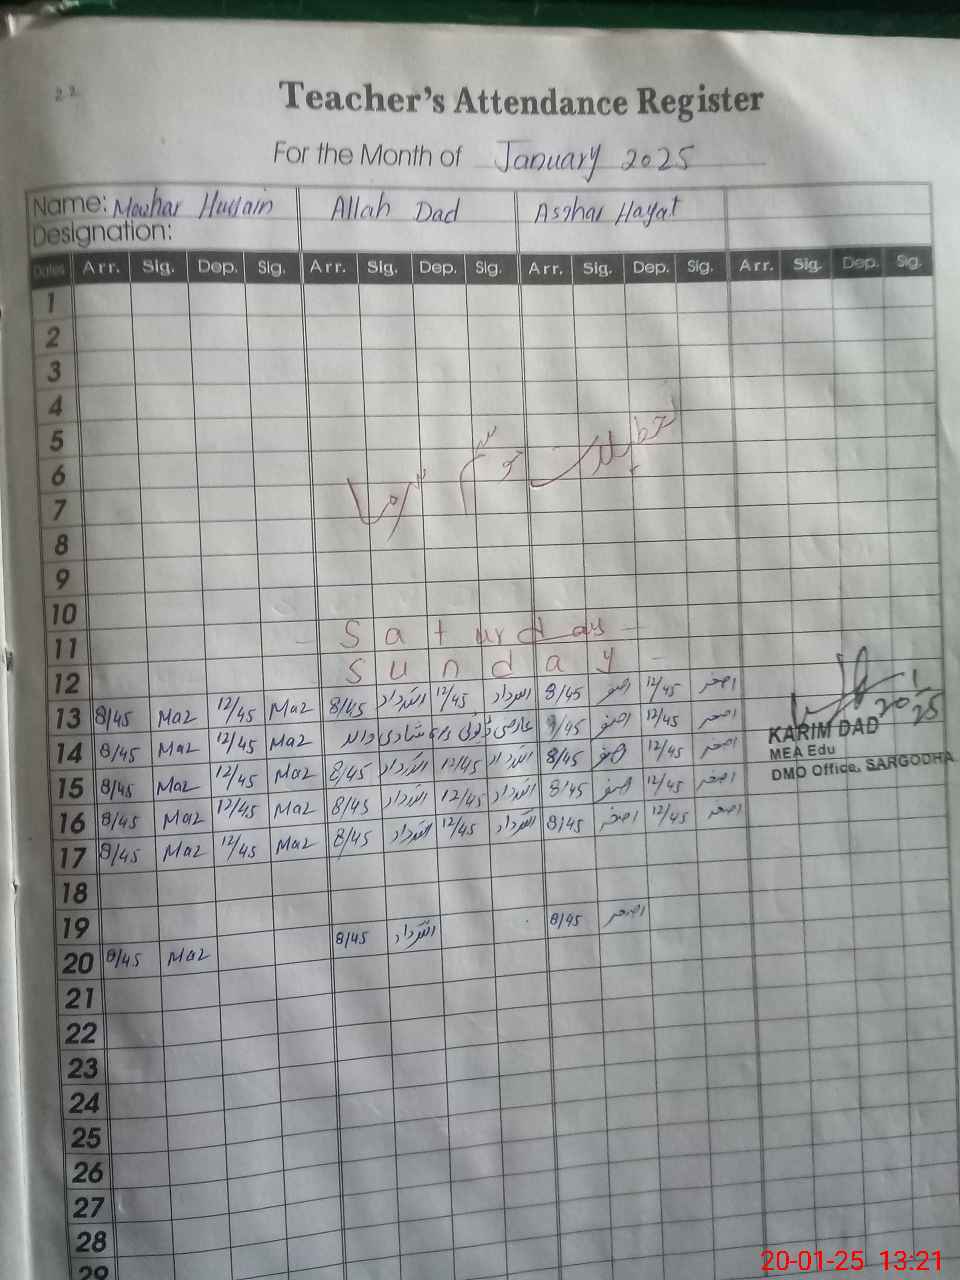 22
Teacher's Attendance Register
For the Month of January 2025
Name: Mazhar Hussain Allah Dad Asghar Hayat
Designation:
Dates Arr. Sig. Dep. Sig. Arr. Sig. Dep. Sig. Arr. Sig. Dep. Sig. Arr. Sig. Dep. Sig.
1
2
3
4
5
6
7
8
9
10
11 Saturday
12 Sunday
13 8/45 Maz 12/45 Maz 8/45 اللہ داد 12/45 اللہ داد 8/45 اصغر 12/45 اصغر
14 8/45 Maz 12/45 Maz 8/45 اصغر 12/45 اصغر
15 8/45 Maz 12/45 Maz 8/45 اللہ داد 12/45 اللہ داد 8/45 اصغر 12/45 اصغر
16 8/45 Maz 12/45 Maz 8/45 اللہ داد 12/45 اللہ داد 8/45 اصغر 12/45 اصغر
17 8/45 Maz 12/45 Maz 8/45 اللہ داد 12/45 اللہ داد 8/45 اصغر 12/45 اصغر
18
19
20 8/45 Maz 8/45 اللہ داد 8/45 اصغر
21
22
23
24
25
26
27
28
29
20/1/25
KARIM DAD
MEA Edu
DMO Office, SARGODHA
20-01-25 13:21